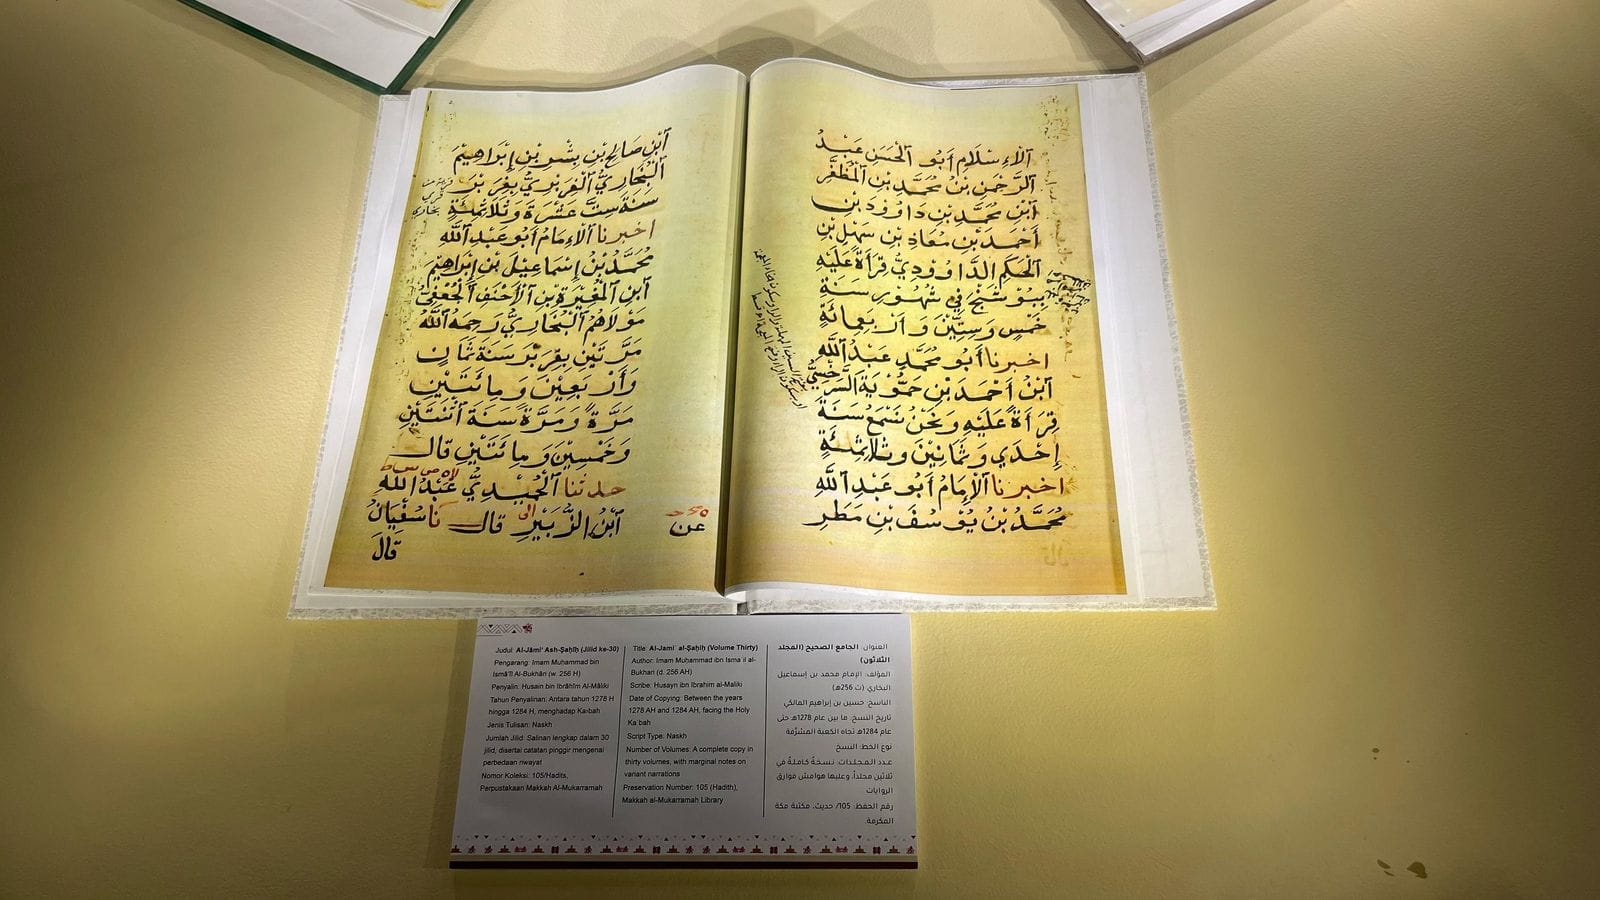 الاسلام أبو الحسن عبد
الرحمن بن محمد بن المظفر
ابن محمد بن داوود بن
أحمد بن معاذ بن سهل بن
الحكم الداوودي قرأة عليه
ببوشنج في شهور سنة
خمس وستين وأربعمائة
اخبرنا أبو محمد عبد الله
ابن أحمد بن حموية السرخسي
قرأة عليه ونحن نسمع سنة
إحدي وثمانين وثلاثمئة
اخبرنا الإمام أبو عبد الله
محمد بن يوسف بن مطر
ابن صالح بن بشر بن إبراهيم
البخاري الفربري بفربر
سنة ست عشرة وثلاثمئة
اخبرنا الامام أبو عبد الله
محمد بن إسماعيل بن إبراهيم
ابن المغيرة بن الأحنف الجعفي
مولاهم البخاري رحمه الله
مرتين بفربر سنة ثمان
وأربعين ومائتين
مرة ومرة سنة اثنتين
وخمسين ومائتين قال
حدثنا الحميدي عبد الله
ابن الزبير قال نا سفيان
عن
قال
Judul: Al-Jāmi' Ash-Ṣaḥīḥ (Jilid ke-30)
Pengarang: Imam Muḥammad bin
Ismā'īl Al-Bukhārī (w. 256 H)
Penyalin: Husain bin Ibrāhīm Al-Māliki
Tahun Penyalinan: Antara tahun 1278 H
hingga 1284 H, menghadap Ka'bah
Jenis Tulisan: Naskh
Jumlah Jilid: Salinan lengkap dalam 30
jilid, disertai catatan pinggir mengenai
perbedaan riwayat
Nomor Koleksi: 105/Hadits,
Perpustakaan Makkah Al-Mukarramah
Title: Al-Jami' al-Ṣaḥīḥ (Volume Thirty)
Author: Imam Muhammad ibn Isma'il al-
Bukhari (d. 256 AH)
Scribe: Husayn ibn Ibrahim al-Maliki
Date of Copying: Between the years
1278 AH and 1284 AH, facing the Holy
Ka'bah
Script Type: Naskh
Number of Volumes: A complete copy in
thirty volumes, with marginal notes on
variant narrations
Preservation Number: 105 (Hadith),
Makkah al-Mukarramah Library
العنوان: الجامع الصحيح (المجلد
الثلاثون)
المؤلف: الإمام محمد بن إسماعيل
البخاري (ت 256هـ)
الناسخ: حسين بن إبراهيم المالكي
تاريخ النسخ: ما بين عام 1278هـ حتى
عام 1284هـ تجاه الكعبة المشرّفة
نوع الخط: النسخ
عدد المجلدات: نسخة كاملة في
ثلاثين مجلداً، وعليها هوامش فوارق
الروايات
رقم الحفظ: 105/ حديث، مكتبة مكة
المكرمة.